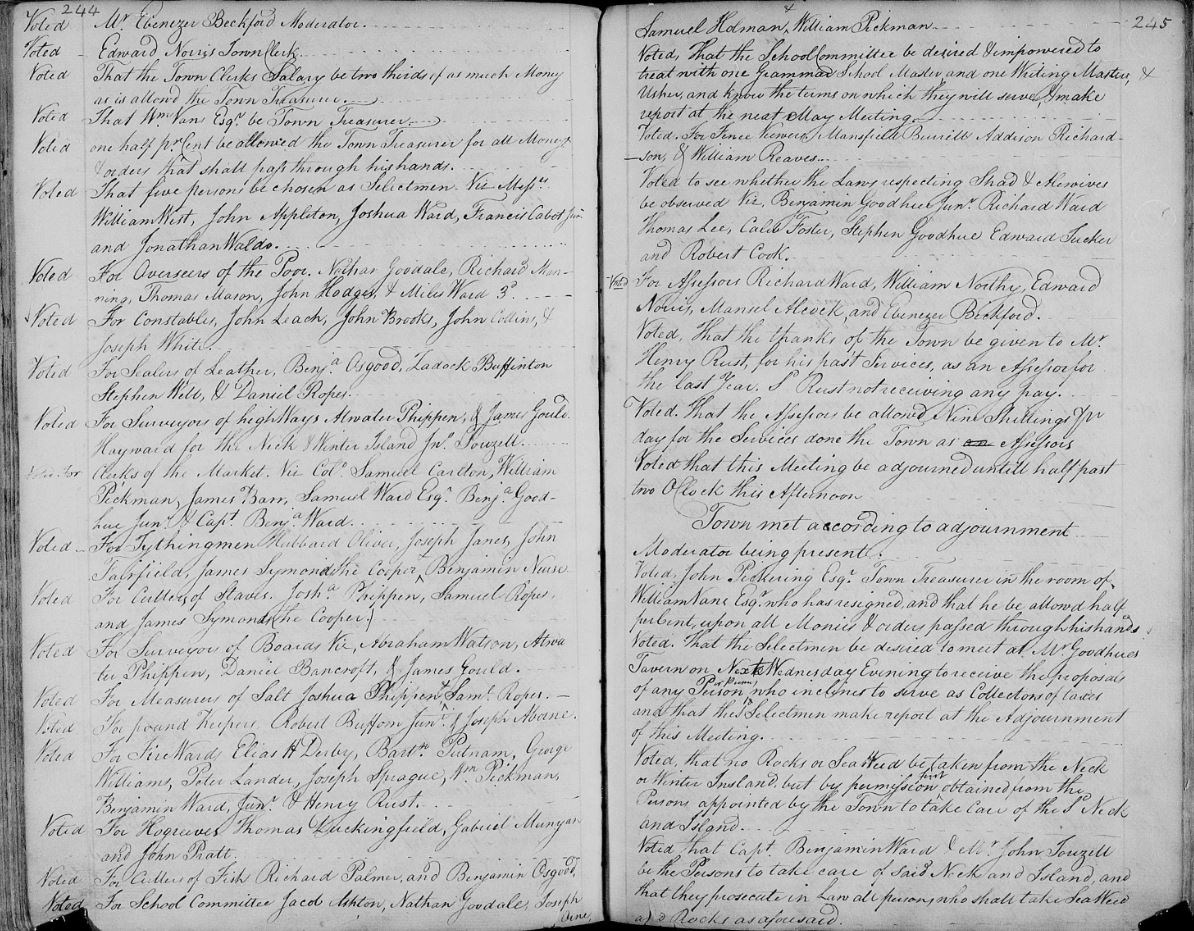 244
Voted Mr Ebenezer Beckford Moderator
Voted Edward Norris Town Clerk
Voted That the Town Clerks Salary be two thirds of as much Money
as is allowd the Town Treasurer
Voted That Wm Vans Esqr be Town Treasurer
Voted one half pr Cent be allowed the Town Treasurer for all Money
& orders that shall pass through his hands
Voted That five persons be chosen as Selectmen Viz Messrs
William West, John Appleton, Joshua Ward, Francis Cabot Jun
and Jonathan Waldo
Voted For Overseers of the Poor. Nathan Goodale, Richard Man-
ning, Thomas Mason, John Hodges, & Miles Ward 3d
Voted For Constables, John Leach, John Brooks, John Collins, &
Joseph White
Voted For Sealers of Leather, Benja Osgood, Zadock Buffinton
Stephen Webb, & Daniel Ropes
Voted For Surveyors of high Ways Atwater Phippen, & James Gould
Hayward for the Neck & Winter Island Jno. Touzell
Clerks of the Market. Viz Colo Samuel Carlton, William
Pickman, James Barr, Samuel Ward Esqr Benja Good-
hue Junr & Capt Benja Ward
Voted For Tythingmen Hubbard Oliver, Joseph Janes, John
Fairfield, James Symonds the Cooper, Benjamin Nurse
Voted For Cullers of Staves. Josha Phippen, Samuel Ropes,
and James Symonds (the Cooper)
Voted For Surveyors of Boards Viz, Abraham Watson, Atwa
ter Phippen, Daniel Bancroft, & James Gould
Voted For Measurers of Salt Joshua Phippen & Saml Ropes
Voted For pound keepers, Robert Buffom Junr & Joseph Abone
Voted For Fire Wards Elias H Derby, Barth Putnam, George
Williams, Peter Lander, Joseph Sprague, Wm Pickman,
Benjamin Ward, Junr & Henry Rust
Voted For Hogreeves Thomas Duckingfield, Gabriel Munyan
and John Pratt
Voted For Cullers of Fish Richard Palmer, and Benjamin Osgood,
Voted For School Committee Jacob Ashton, Nathan Goodale, Joseph
245
Samuel Holman, & William Pickman
Voted, That the School Committee be desired & impowered to
treat with one Grammar School Master and one Writing Master, &
Usher, and know the terms on which they will serve, & make
report at the next May Meeting
Voted, For Fence Viewers, Mansfield Burrill Addison Richard-
son, & William Reaves
Voted to see whether the Laws respecting Shad & Alewives
be observed Viz, Benjamin Goodhue Junr Richard Ward
Thomas Lee, Caleb Foster, Stephen Goodhue Edward Tucker
and Robert Cook.
Voted For Assessors Richard Ward, William Northy, Edward
Norris, Mansel Alcock, and Ebenezer Beckford.
Voted, That the thanks of the Town be given to Mr
Henry Rust, for his past Services, as an Assessor for
the last Year. Sd Rust not receiving any pay
Voted. That the Assessors be allowd Nine Shillings Pr
day for the Services done the Town as an Assessors
Voted that this Meeting be adjourned untill half past
two OClock this Afternoon
Town met according to adjournment
Moderator being present.
Voted, John Pickering Esqr Town Treasurer in the room of
William Vans Esqr who has resigned, and that he be allowd half
per Cent, upon all Monies & orders passed through his hands
Voted. That the Selectmen be desired to meet at Mr Goodhues
Tavern on Next Wednesday Evening to receive the proposals
of any Person or Persons who inclines to serve as Collectors of taxes
and that the Selectmen make report at the Adjournment
of this Meeting
Voted, that no Rocks or Sea Weed be taken from the Neck
or Winter Insland but by permission first obtained from the
Persons appointed by the Town to take Care of the Sd Neck
and Island
Voted that Capt Benjamin Ward & Mr John Touzell
be the Persons to take care of Said Neck and Island, and
that they prosecute in Law all persons, who shall take Sea Weed
Rocks as aforesaid.